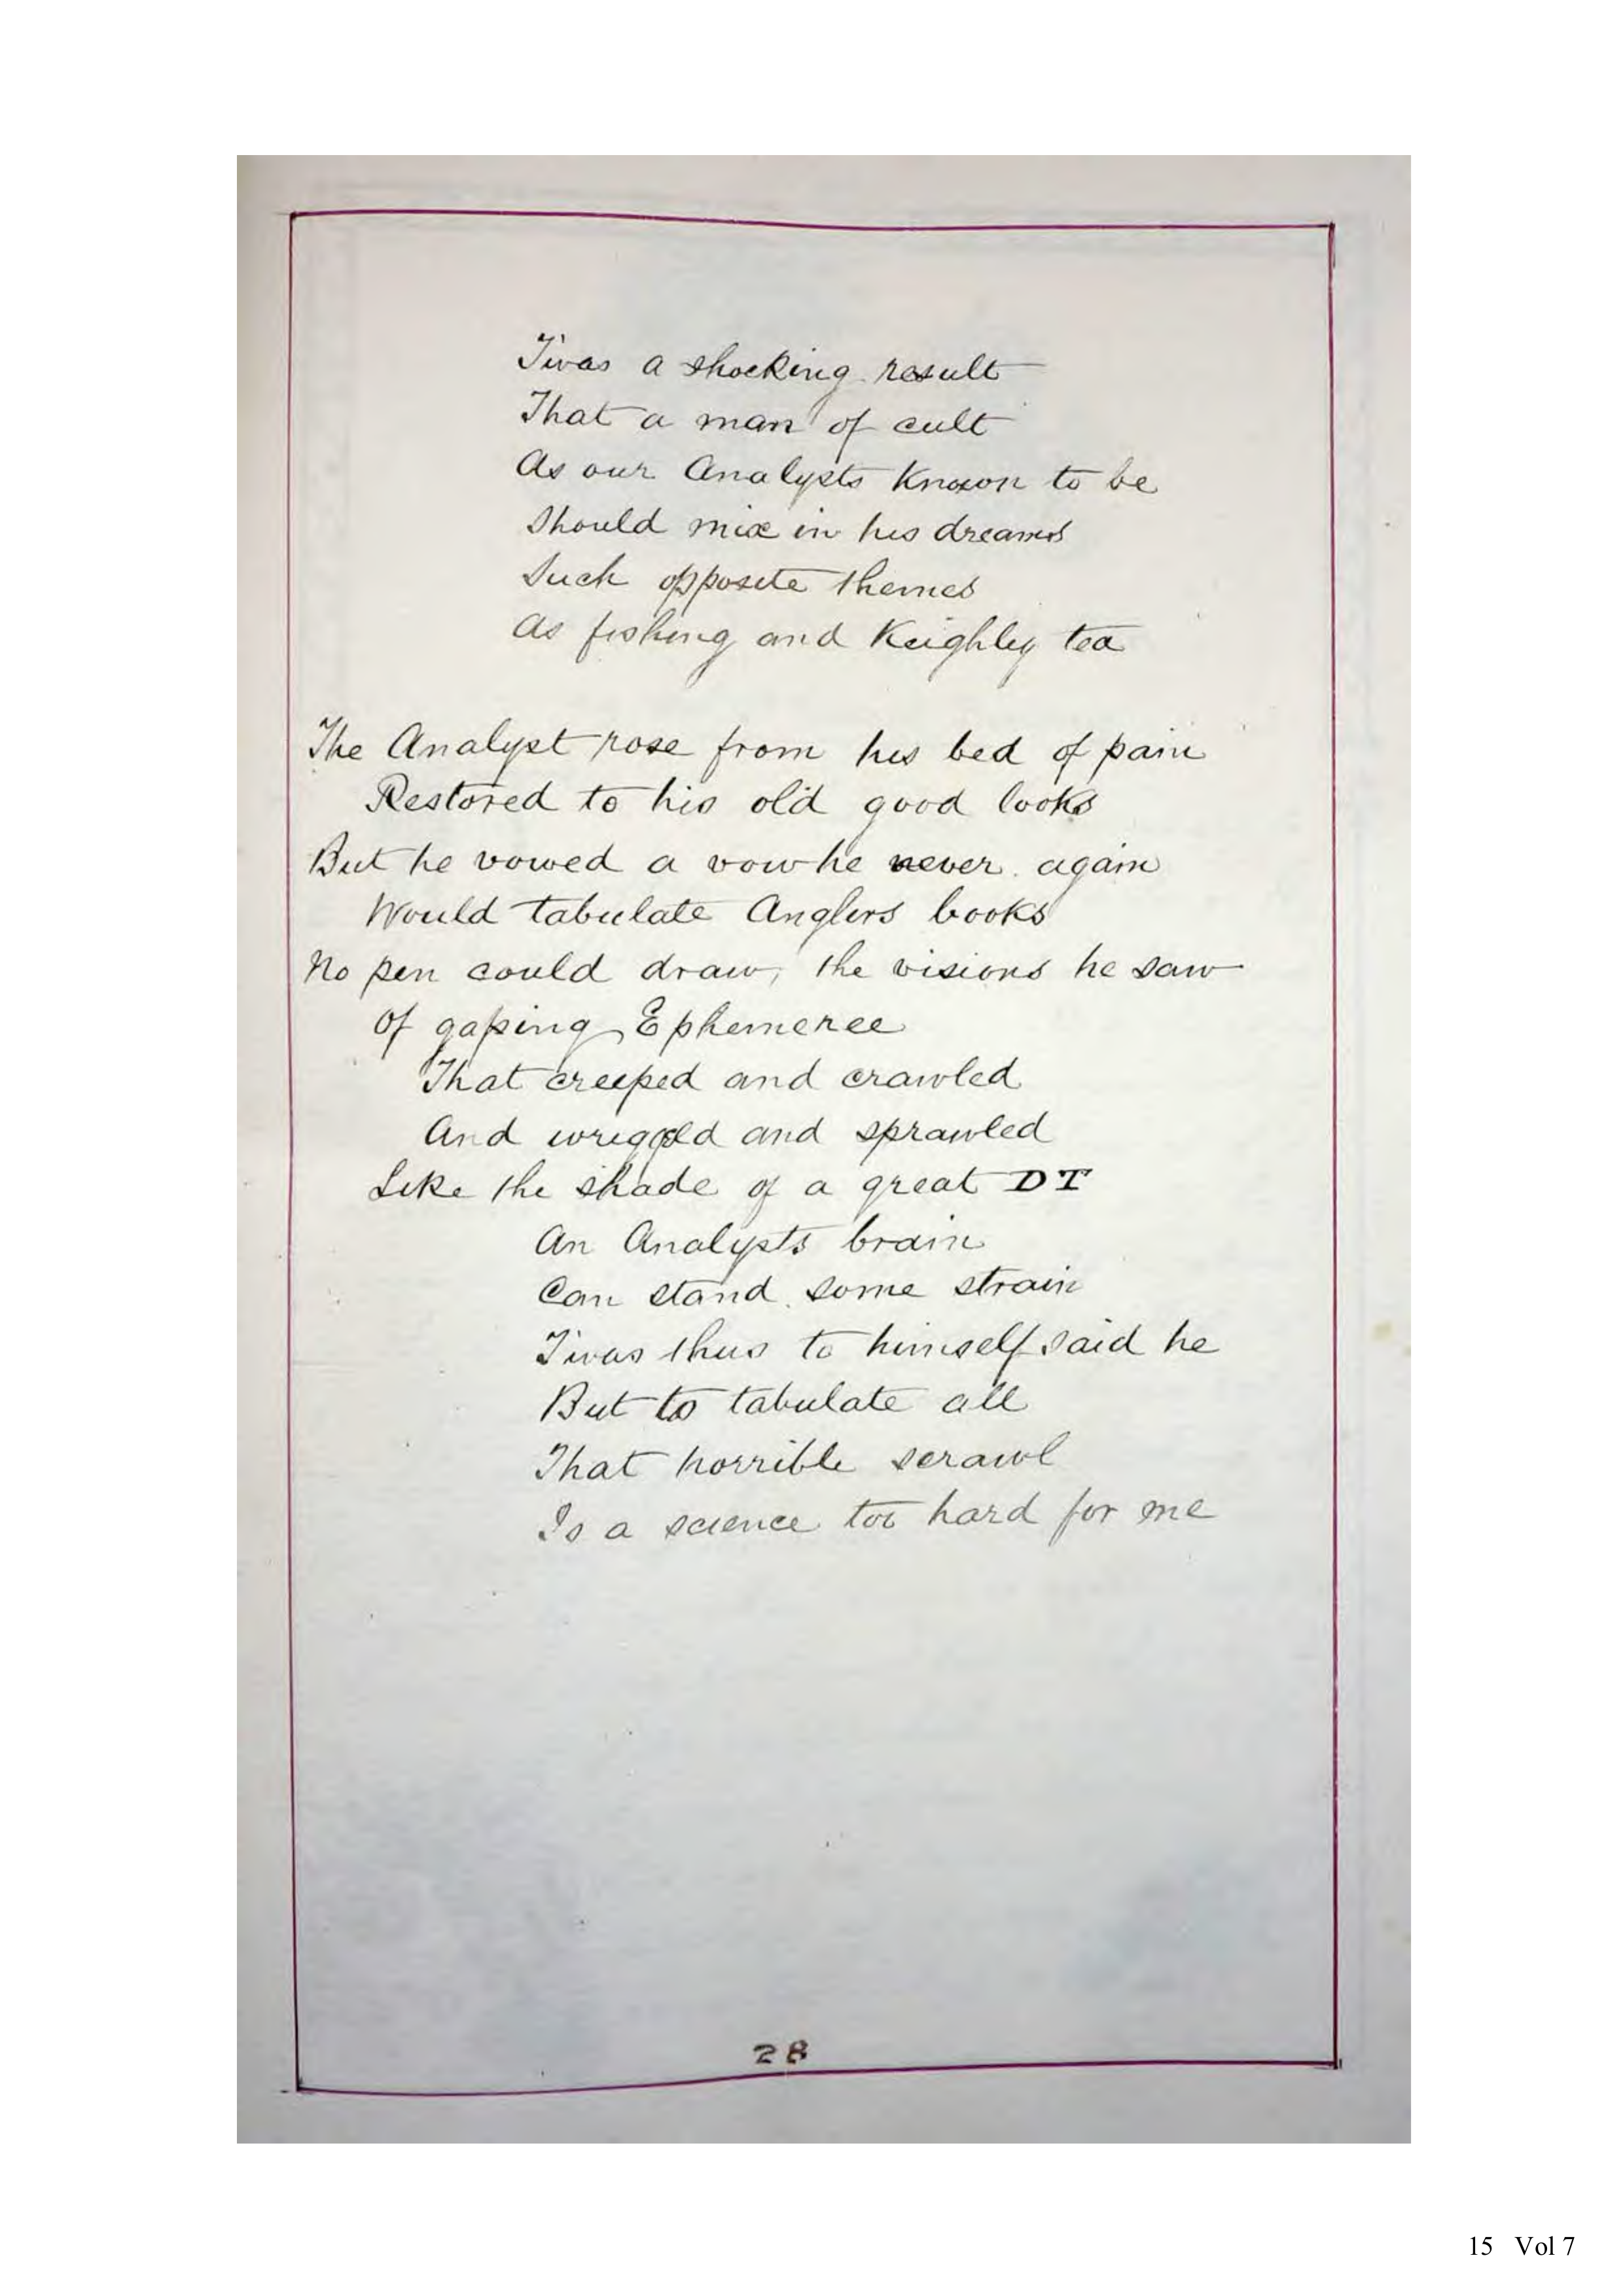 T'was a shocking result
That a man of cult
As our Analysts known to be
Should mix in his dreams
Such opposite themes
As fishing and Keighley tea
The Analyst rose from his bed of pain
Restored to his old good looks
But he vowed a vow he never again
Would tabulate Anglers books
No pen could draw, the visions he saw
Of gaping Ephemeree
That creeped and crawled
And wriggld and sprawled
Like the shade of a great DT
An Analysts brain
Can stand some strain
T'was thus to himself said he
But to tabulate all
That horrible scrawl
Is a science too hard for me
28
15 Vol 7